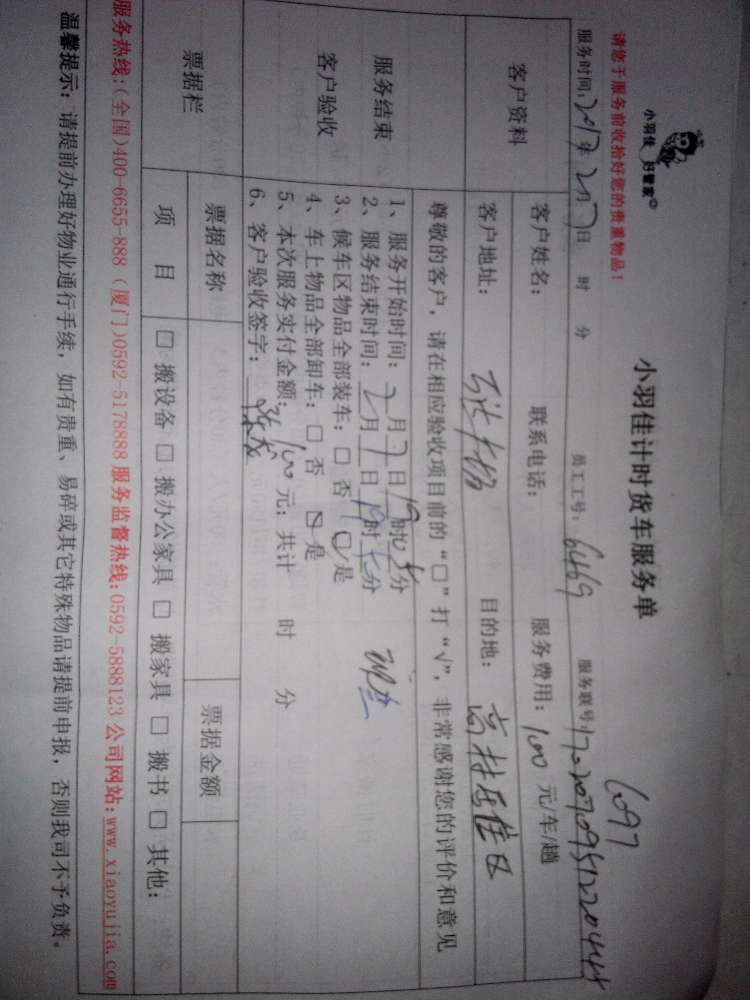 小羽佳 好管家®
小羽佳计时货车服务单
请您于服务前收拾好您的贵重物品！
服务时间：2017年2月7日 时 分 员工工号：6469 服务联号
6097
客户资料
客户姓名： 联系电话： 服务费用：100 元/车/趟
客户地址： 目的地：
服务结束
客户验收
尊敬的客户，请在相应验收项目前的“□”打“√”，非常感谢您的评价和意见
1、服务开始时间：2月7日19时 分
2、服务结束时间：2月7日19时 分
3、候车区物品全部装车：□ 否 ☑是
4、车上物品全部卸车：□ 否 ☑是
5、本次服务实付金额：100元；共计 时 分
6、客户验收签字：
票据栏
票据名称 票据金额
项 目 □ 搬设备 □ 搬办公家具 □ 搬家具 □ 搬书 □ 其他：
服务热线：(全国)400-6655-888 (厦门)0592-5178888 服务监督热线：0592-5888123 公司网站：www.xiaoyujia.com
温馨提示：请提前办理好物业通行手续，如有贵重、易碎或其它特殊物品请提前申报，否则我司不予负责。